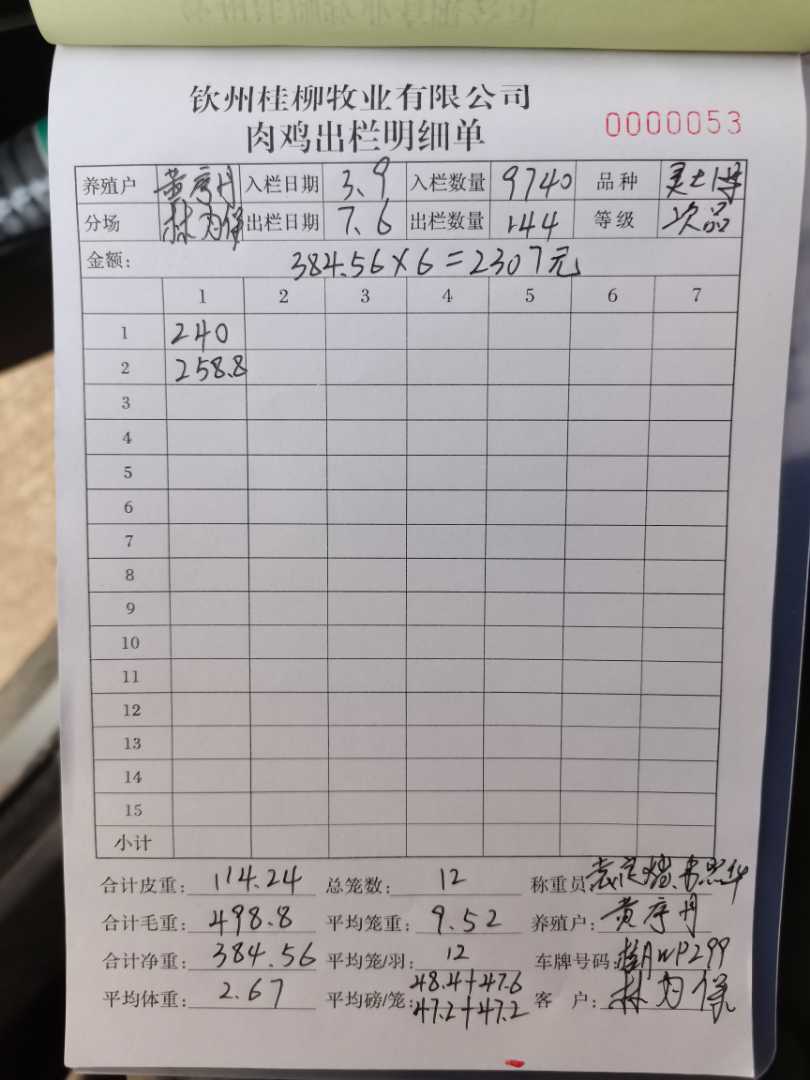 钦州桂柳牧业有限公司
肉鸡出栏明细单
0000053
养殖户 黄序丹 入栏日期 3.9 入栏数量 9740 品种
分场 林均保 出栏日期 7.6 出栏数量 144 等级 次品
金额: 384.56×6=2307元
1 2 3 4 5 6 7
1 240
2 258.8
3
4
5
6
7
8
9
10
11
12
13
14
15
小计
合计皮重: 114.24 总笼数: 12 称重员:
合计毛重: 498.8 平均笼重: 9.52 养殖户: 黄序丹
合计净重: 384.56 平均笼/羽: 12 车牌号码:
平均体重: 2.67 平均磅/笼: 48.4+47.6 客 户: 林均保
47.2+47.2